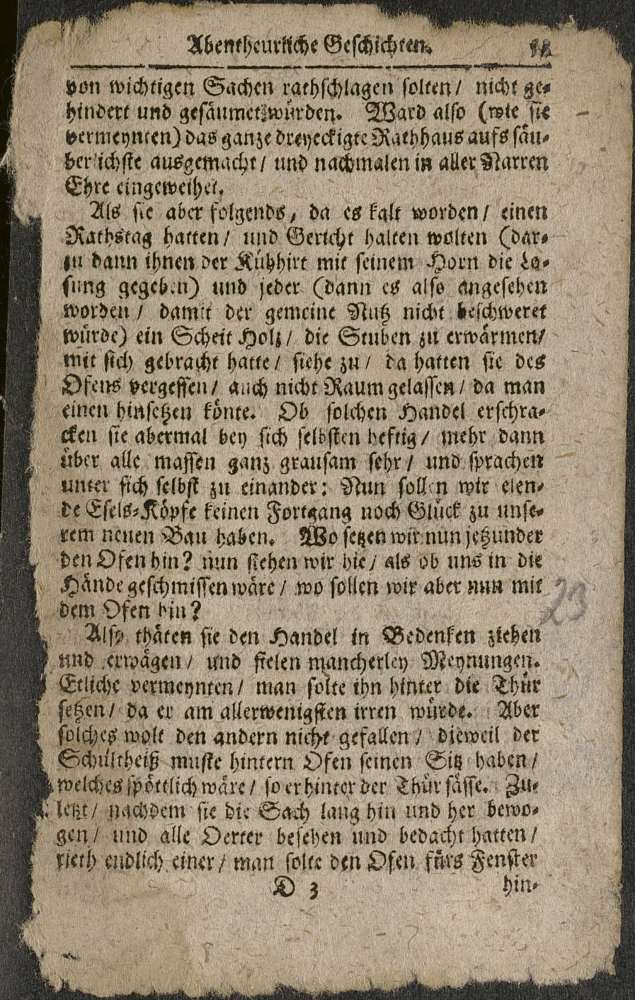 Abentheurliche Geschichten.
von wichtigen Sachen rathschlagen solten / nicht ge-
hindert und gesäumet würden. Ward also (wie sie
vermeynten) das ganze dreyeckigte Rathhaus aufs säu-
berlichste ausgemacht / und nachmalen in aller Narren
Ehre eingeweihet.
Als sie aber folgends, da es kalt worden / einen
Rathstag hatten / und Gericht halten wolten (dar-
zu dann ihnen der Kühhirt mit seinem Horn die Lo-
sung gegeben) und jeder (dann es also angesehen
worden / damit der gemeine Nutz nicht beschweret
würde) ein Scheit Holz / die Stuben zu erwärmen /
mit sich gebracht hatte / siehe zu / da hatten sie des
Ofens vergessen / auch nicht Raum gelassen / da man
einen hinsetzen könte. Ob solchen Handel erschra-
cken sie abermal bey sich selbsten heftig / mehr dann
über alle massen ganz grausam sehr / und sprachen
unter sich selbst zu einander: Nun sollen wir elen-
de Esels-Köpfe keinen Fortgang noch Glück zu unse-
rem neuen Bau haben. Wo setzen wir nun jetzunder
den Ofen hin? nun stehen wir hie / als ob uns in die
Hände geschmissen wäre / wo sollen wir aber nun mit
dem Ofen hin?
23
Also thäten sie den Handel in Bedenken ziehen
und erwägen / und fielen mancherley Meynungen.
Etliche vermeynten / man solte ihn hinter die Thür
setzen / da er am allerwenigsten irren würde. Aber
solches wolt den andern nicht gefallen / dieweil der
Schultheiß muste hintern Ofen seinen Sitz haben /
welches spöttlich wäre / so er hinter der Thür sässe. Zu-
letzt / nachdem sie die Sach lang hin und her bewo-
gen / und alle Oerter besehen und bedacht hatten /
rieth endlich einer / man solte den Ofen fürs Fenster
D 3 hin-